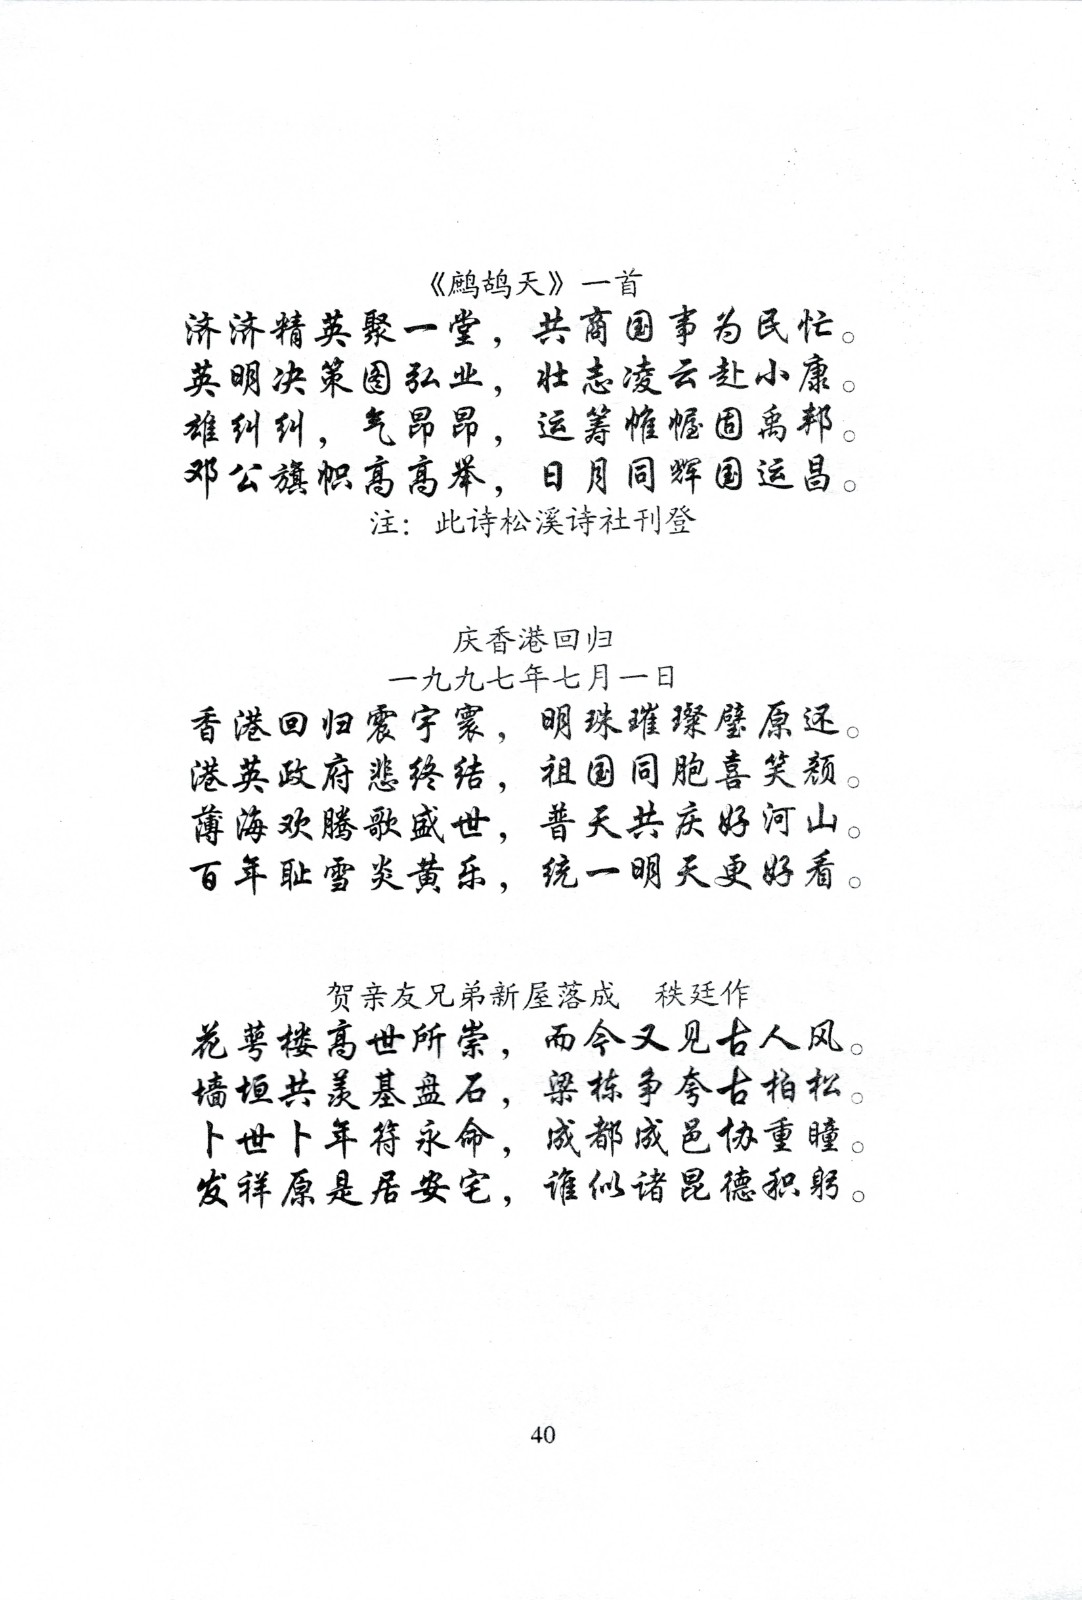 《鹧鸪天》一首
济济精英聚一堂，共商国事为民忙。
英明决策图弘业，壮志凌云赴小康。
雄纠纠，气昂昂，运筹帷幄固禹邦。
邓公旗帜高高举，日月同辉国运昌。
注：此诗松溪诗社刊登
庆香港回归
一九九七年七月一日
香港回归震宇寰，明珠璀璨璧原还。
港英政府悲终结，祖国同胞喜笑颜。
薄海欢腾歌盛世，普天共庆好河山。
百年耻雪炎黄乐，统一明天更好看。
贺亲友兄弟新屋落成 秩廷作
花萼楼高世所崇，而今又见古人风。
墙垣共羡基盘石，梁栋争夸古柏松。
卜世卜年符永命，成都成邑协重瞳。
发祥原是居安宅，谁似诸昆德积躬。
40